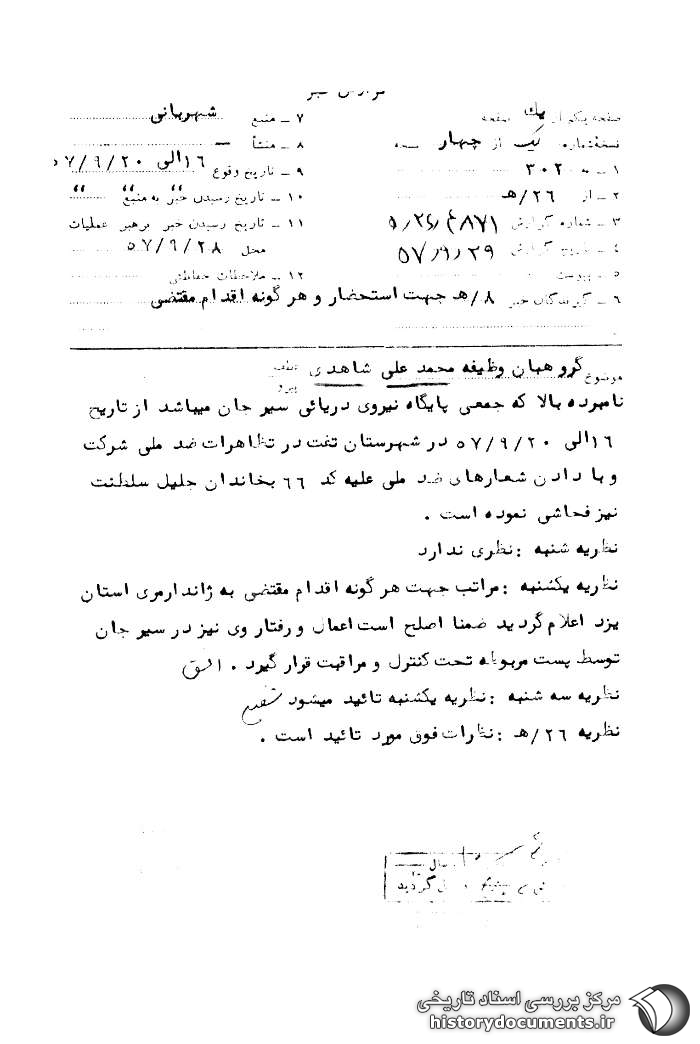 گزارش خبر
صفحه یکم از یک صفحه
نسخه شماره یک از چهار نسخه
۱ ـ به ۳۰۲
۲ ـ از ۲۶/هـ
۳ ـ شماره گزارش
۴ ـ تاریخ گزارش ۵۷٫۹٫۲۹
۵ ـ پیوست
۶ ـ گیرندگان خبر ۸/هـ جهت استحضار و هرگونه اقدام مقتضی
۷ ـ منبع شهربانی
۸ ـ منشأ ـ
۹ ـ تاریخ وقوع ۱۶الی ۵۷/۹/۲۰
۱۰ ـ تاریخ رسیدن خبر به منبع " "
۱۱ ـ تاریخ رسیدن خبر برهبر عملیات
محل ۵۷/۹/۲۸
۱۲ ـ ملاحظات حفاظتی
موضوع گروهبان وظیفه محمد علی شاهدی
نامبرده بالا که جمعی پایگاه نیروی دریائی سیرجان میباشد از تاریخ
۱۶الی ۵۷/۹/۲۰ در شهرستان تفت در تظاهرات ضد ملی شرکت
و با دادن شعارهای ضد ملی علیه کد ۶۶ بخاندان جلیل سلطنت
نیز فحاشی نموده است .
نظریه شنبه : نظری ندارد
نظریه یکشنبه : مراتب جهت هرگونه اقدام مقتضی به ژاندارمری استان
یزد اعلام گردید ضمنا اصلح است اعمال و رفتار وی نیز در سیرجان
توسط پست مربوطه تحت کنترل و مراقبت قرار گیرد .
نظریه سه شنبه : نظریه یکشنبه تائید میشود
نظریه ۲۶/هـ : نظرات فوق مورد تائید است .
گردید
مرکز بررسی اسناد تاریخی
historydocuments.ir